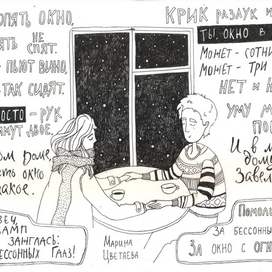 ОПЯТЬ ОКНО,
ЯТЬ НЕ
СПЯТ.
- ПЬЮТ ВИНО,
- ТАК СИДЯТ.
ОСТО - РУК
МУТ ДВОЕ.
ОМ ДОМЕ,
СТЬ ОКНО
АКОЕ.
КРИК РАЗЛУК И
ТЫ, ОКНО В
МОЖЕТ - СОТНИ
МОЖЕТ - ТРИ
НЕТ И Н
УМУ М
ПО
И В М
ДОМЕ
ЗАВЕ
ВЕЧ,
ЛАМП
ЗАНГЛАСЬ:
ЕССОННЫХ ГЛАЗ!
МАРИНА
ЦВЕТАЕВА
ПОМОЛИ
ЗА БЕССОННЫ
ЗА ОКНО С ОГН